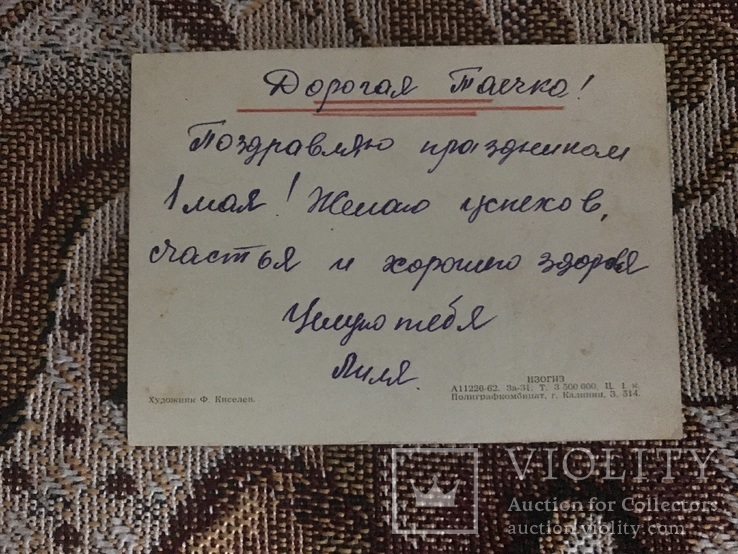 Дорогая Таечка!
Поздравляю праздником
1 мая! Желаю успехов,
счастья и хорошего здоровя
Целую тебя
Лиля.
Художник Ф. Киселев.
ИЗОГИЗ
А11226-62. За-31. Т. 3 500 000. Ц. 1 к.
Полиграфкомбинат, г. Калинин. З. 514.
VIOLITY
Auction for Collectors
auction.violity.com